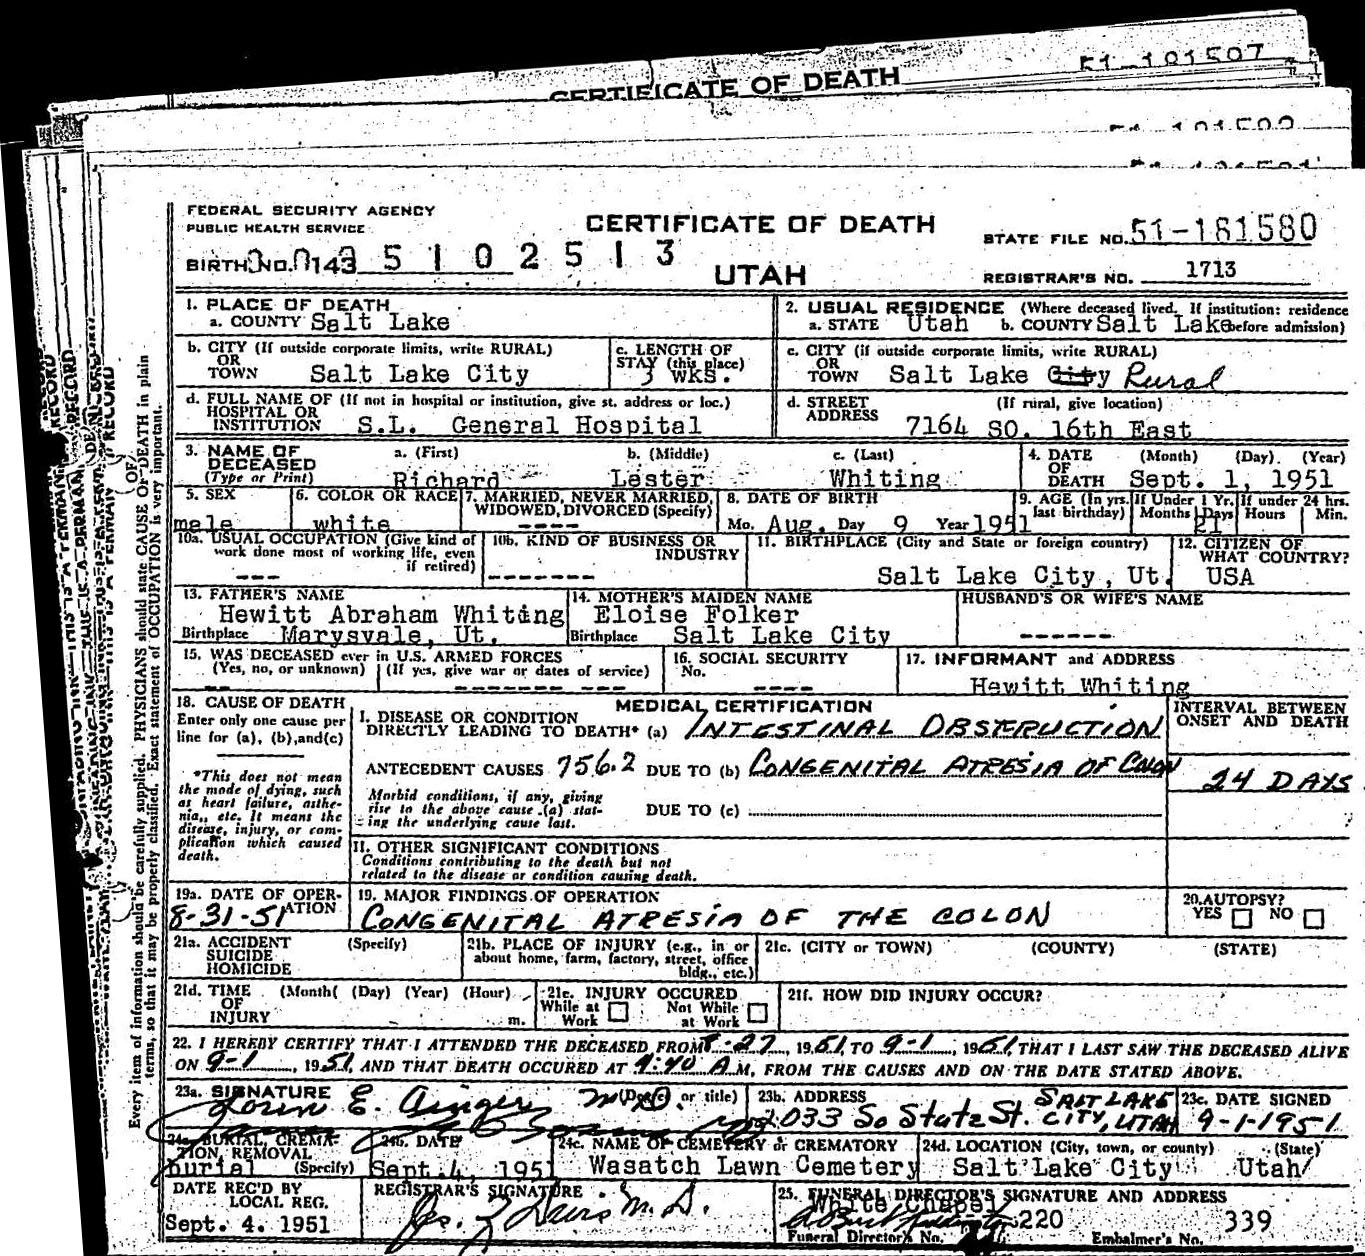 CERTIFICATE OF DEATH
FEDERAL SECURITY AGENCY
PUBLIC HEALTH SERVICE
CERTIFICATE OF DEATH
STATE FILE NO. 51-181580
BIRTH NO. 0143 5 1 0 2 5 1 3
UTAH
REGISTRAR'S NO. 1713
1. PLACE OF DEATH
a. COUNTY Salt Lake
2. USUAL RESIDENCE (Where deceased lived. If institution: residence
a. STATE Utah b. COUNTY Salt Lake before admission)
b. CITY (If outside corporate limits, write RURAL)
OR
TOWN Salt Lake City
c. LENGTH OF
STAY (this place)
3 WKS.
c. CITY (if outside corporate limits, write RURAL)
OR
TOWN Salt Lake City Rural
d. FULL NAME OF (If not in hospital or institution, give st. address or loc.)
HOSPITAL OR
INSTITUTION S.L. General Hospital
d. STREET (If rural, give location)
ADDRESS 7164 SO. 16th East
3. NAME OF DECEASED
(Type or Print)
a. (First) b. (Middle) c. (Last)
Richard Lester Whiting
4. DATE OF DEATH (Month) (Day) (Year)
Sept. 1, 1951
5. SEX
male
6. COLOR OR RACE
white
7. MARRIED, NEVER MARRIED,
WIDOWED, DIVORCED (Specify)
----
8. DATE OF BIRTH
Mo. Aug. Day 9 Year 1951
9. AGE (In yrs. last birthday)
If Under 1 Yr. Months Days
21
If under 24 hrs. Hours Min.
10a. USUAL OCCUPATION (Give kind of
work done most of working life, even
if retired)
---
10b. KIND OF BUSINESS OR
INDUSTRY
-------
11. BIRTHPLACE (City and State or foreign country)
Salt Lake City, Ut.
12. CITIZEN OF
WHAT COUNTRY?
USA
13. FATHER'S NAME
Hewitt Abraham Whiting
Birthplace Marysvale, Ut.
14. MOTHER'S MAIDEN NAME
Eloise Folker
Birthplace Salt Lake City
HUSBAND'S OR WIFE'S NAME
------
15. WAS DECEASED ever in U.S. ARMED FORCES
(Yes, no, or unknown) (If yes, give war or dates of service)
-- ------- ---
16. SOCIAL SECURITY
No.
----
17. INFORMANT and ADDRESS
Hewitt Whiting
18. CAUSE OF DEATH
Enter only one cause per
line for (a), (b), and (c)
*This does not mean
the mode of dying, such
as heart failure, asthe-
nia, etc. It means the
disease, injury, or com-
plication which caused
death.
MEDICAL CERTIFICATION
I. DISEASE OR CONDITION
DIRECTLY LEADING TO DEATH* (a) INTESTINAL OBSTRUCTION
ANTECEDENT CAUSES 756.2 DUE TO (b) CONGENITAL ATRESIA OF COLON
Morbid conditions, if any, giving
rise to the above cause (a) stat-
ing the underlying cause last.
DUE TO (c)
INTERVAL BETWEEN
ONSET AND DEATH
24 DAYS
II. OTHER SIGNIFICANT CONDITIONS
Conditions contributing to the death but not
related to the disease or condition causing death.
19a. DATE OF OPER-
ATION
8-31-51
19. MAJOR FINDINGS OF OPERATION
CONGENITAL ATRESIA OF THE COLON
20. AUTOPSY?
YES NO
21a. ACCIDENT (Specify)
SUICIDE
HOMICIDE
21b. PLACE OF INJURY (e.g., in or
about home, farm, factory, street, office
bldg., etc.)
21c. (CITY or TOWN) (COUNTY) (STATE)
21d. TIME (Month( (Day) (Year) (Hour)
OF
INJURY m.
21e. INJURY OCCURED
While at Work Not While at Work
21f. HOW DID INJURY OCCUR?
22. I HEREBY CERTIFY THAT I ATTENDED THE DECEASED FROM 8-27, 1951, TO 9-1, 1951, THAT I LAST SAW THE DECEASED ALIVE
ON 9-1, 1951, AND THAT DEATH OCCURED AT 9:40 A M, FROM THE CAUSES AND ON THE DATE STATED ABOVE.
23a. SIGNATURE (Degree or title)
E. M.D.
23b. ADDRESS
2033 So State St. SALT LAKE CITY, UTAH
23c. DATE SIGNED
9-1-1951
24a. BURIAL, CREMA-
TION, REMOVAL
burial (Specify)
24b. DATE
Sept. 4, 1951
24c. NAME OF CEMETERY or CREMATORY
Wasatch Lawn Cemetery
24d. LOCATION (City, town, or county) (State)
Salt Lake City Utah
DATE REC'D BY
LOCAL REG.
Sept. 4. 1951
REGISTRAR'S SIGNATURE
M.D.
25. FUNERAL DIRECTOR'S SIGNATURE AND ADDRESS
White Chapel
220 339
Funeral Director's No. Embalmer's No.
Every item of information should be carefully supplied. PHYSICIANS should state CAUSE OF DEATH in plain
terms, so that it may be properly classified. Exact statement of OCCUPATION is very important.